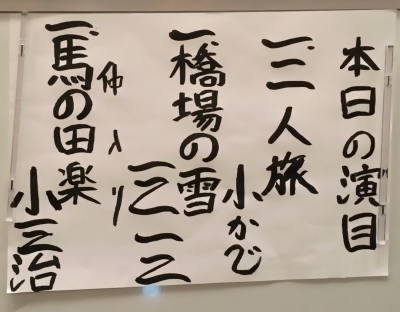 本日の演目
一、三人旅
小かじ
一、橋場の雪
三三
仲入り
一、馬の田楽
小三治